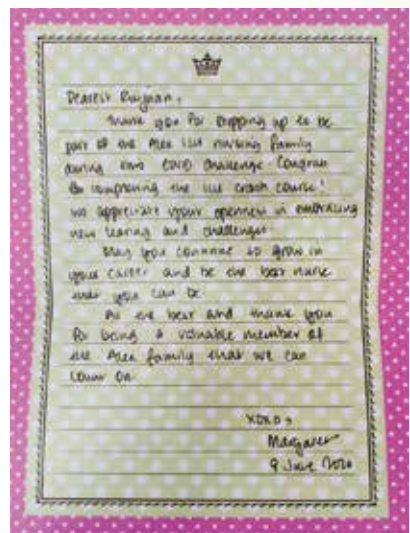 Dearest Ruijuan,
Thank you for stepping up to be
part of the Alex ICU nursing family
during this COVID challenge. Congrats
for completing the ICU crash course!
We appreciate your openness in embracing
new learing and challenges.
May you continue to grow in
your career and be the best nurse
that you can be.
All the best and thank you
for being a valuable member of
the Alex family that we can
count on.
XOXO,
Margaret
9 June 2020